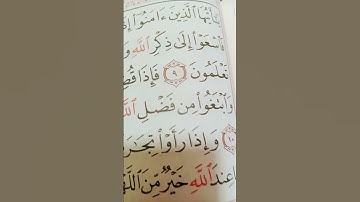 يَٰٓأَيُّهَا ٱلَّذِينَ ءَامَنُوٓا۟ إِذَا
فَٱسْعَوْا۟ إِلَىٰ ذِكْرِ ٱللَّهِ وَ
تَعْلَمُونَ ٩ فَإِذَا قُضِ
وَٱبْتَغُوا۟ مِن فَضْلِ ٱللَّهِ
١٠ وَإِذَا رَأَوْا۟ تِجَٰرَ
عِندَ ٱللَّهِ خَيْرٌ مِّنَ ٱللَّهْ